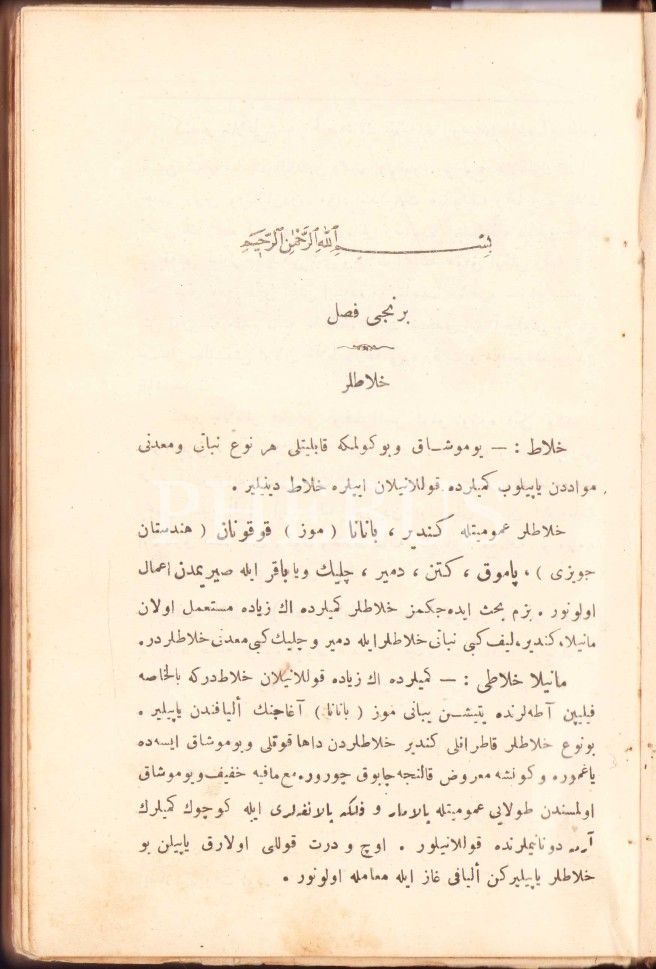 بسم الله الرحمن الرحيم
برنجى فصل
خلاطلر
خلاط : — يوموشاق وبوكولمكه قابليتلى هر نوع نباتى ومعدنى
مواددن ياپيلوب كميلرده قوللانيلان ايپلره خلاط دينيلير .
خلاطلر عموميتله كندير ، بانانا ( موز ) قوقونان ( هندستان
جويزى ) ، پاموق ، كتن ، دمير ، چليك ويا باقر ايله صيريمدن اعمال
اولونور . بزم بحث ايده‌جكمز خلاطلر كميلرده اك زياده مستعمل اولان
مانيلا، كندير، ليف كبى نباتى خلاطلر ايله دمير و چليك كبى معدنى خلاطلردر.
مانيلا خلاطى : — كميلرده اك زياده قوللانيلان خلاطدركه بالخاصه
فيليپن آطه‌لرنده يتيشن يبانى موز ( بانانا ) آغاجنك أليافندن ياپيلير .
بونوع خلاطلر قاطرانلى كندير خلاطلردن داها قوتلى وبوموشاق ايسه‌ده
ياغموره و كونشه معروض قالنجه چابوق چورور. مع مافيه خفيف وبوموشاق
اولمسندن طولايى عموميتله پالامار و فلكه پالانغه‌لرى ايله كوچوك كميلرك
دونانيملرنده قوللانيلور . اوچ و درت قوللى اولارق ياپيلن بو
خلاطلر ياپيليركن أليافى غاز ايله معامله اولونور .
PHEBUS